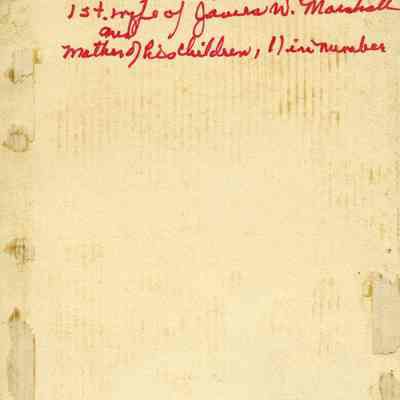 1st. wife of James W. Marshall
and
mother of his children, 11 in number